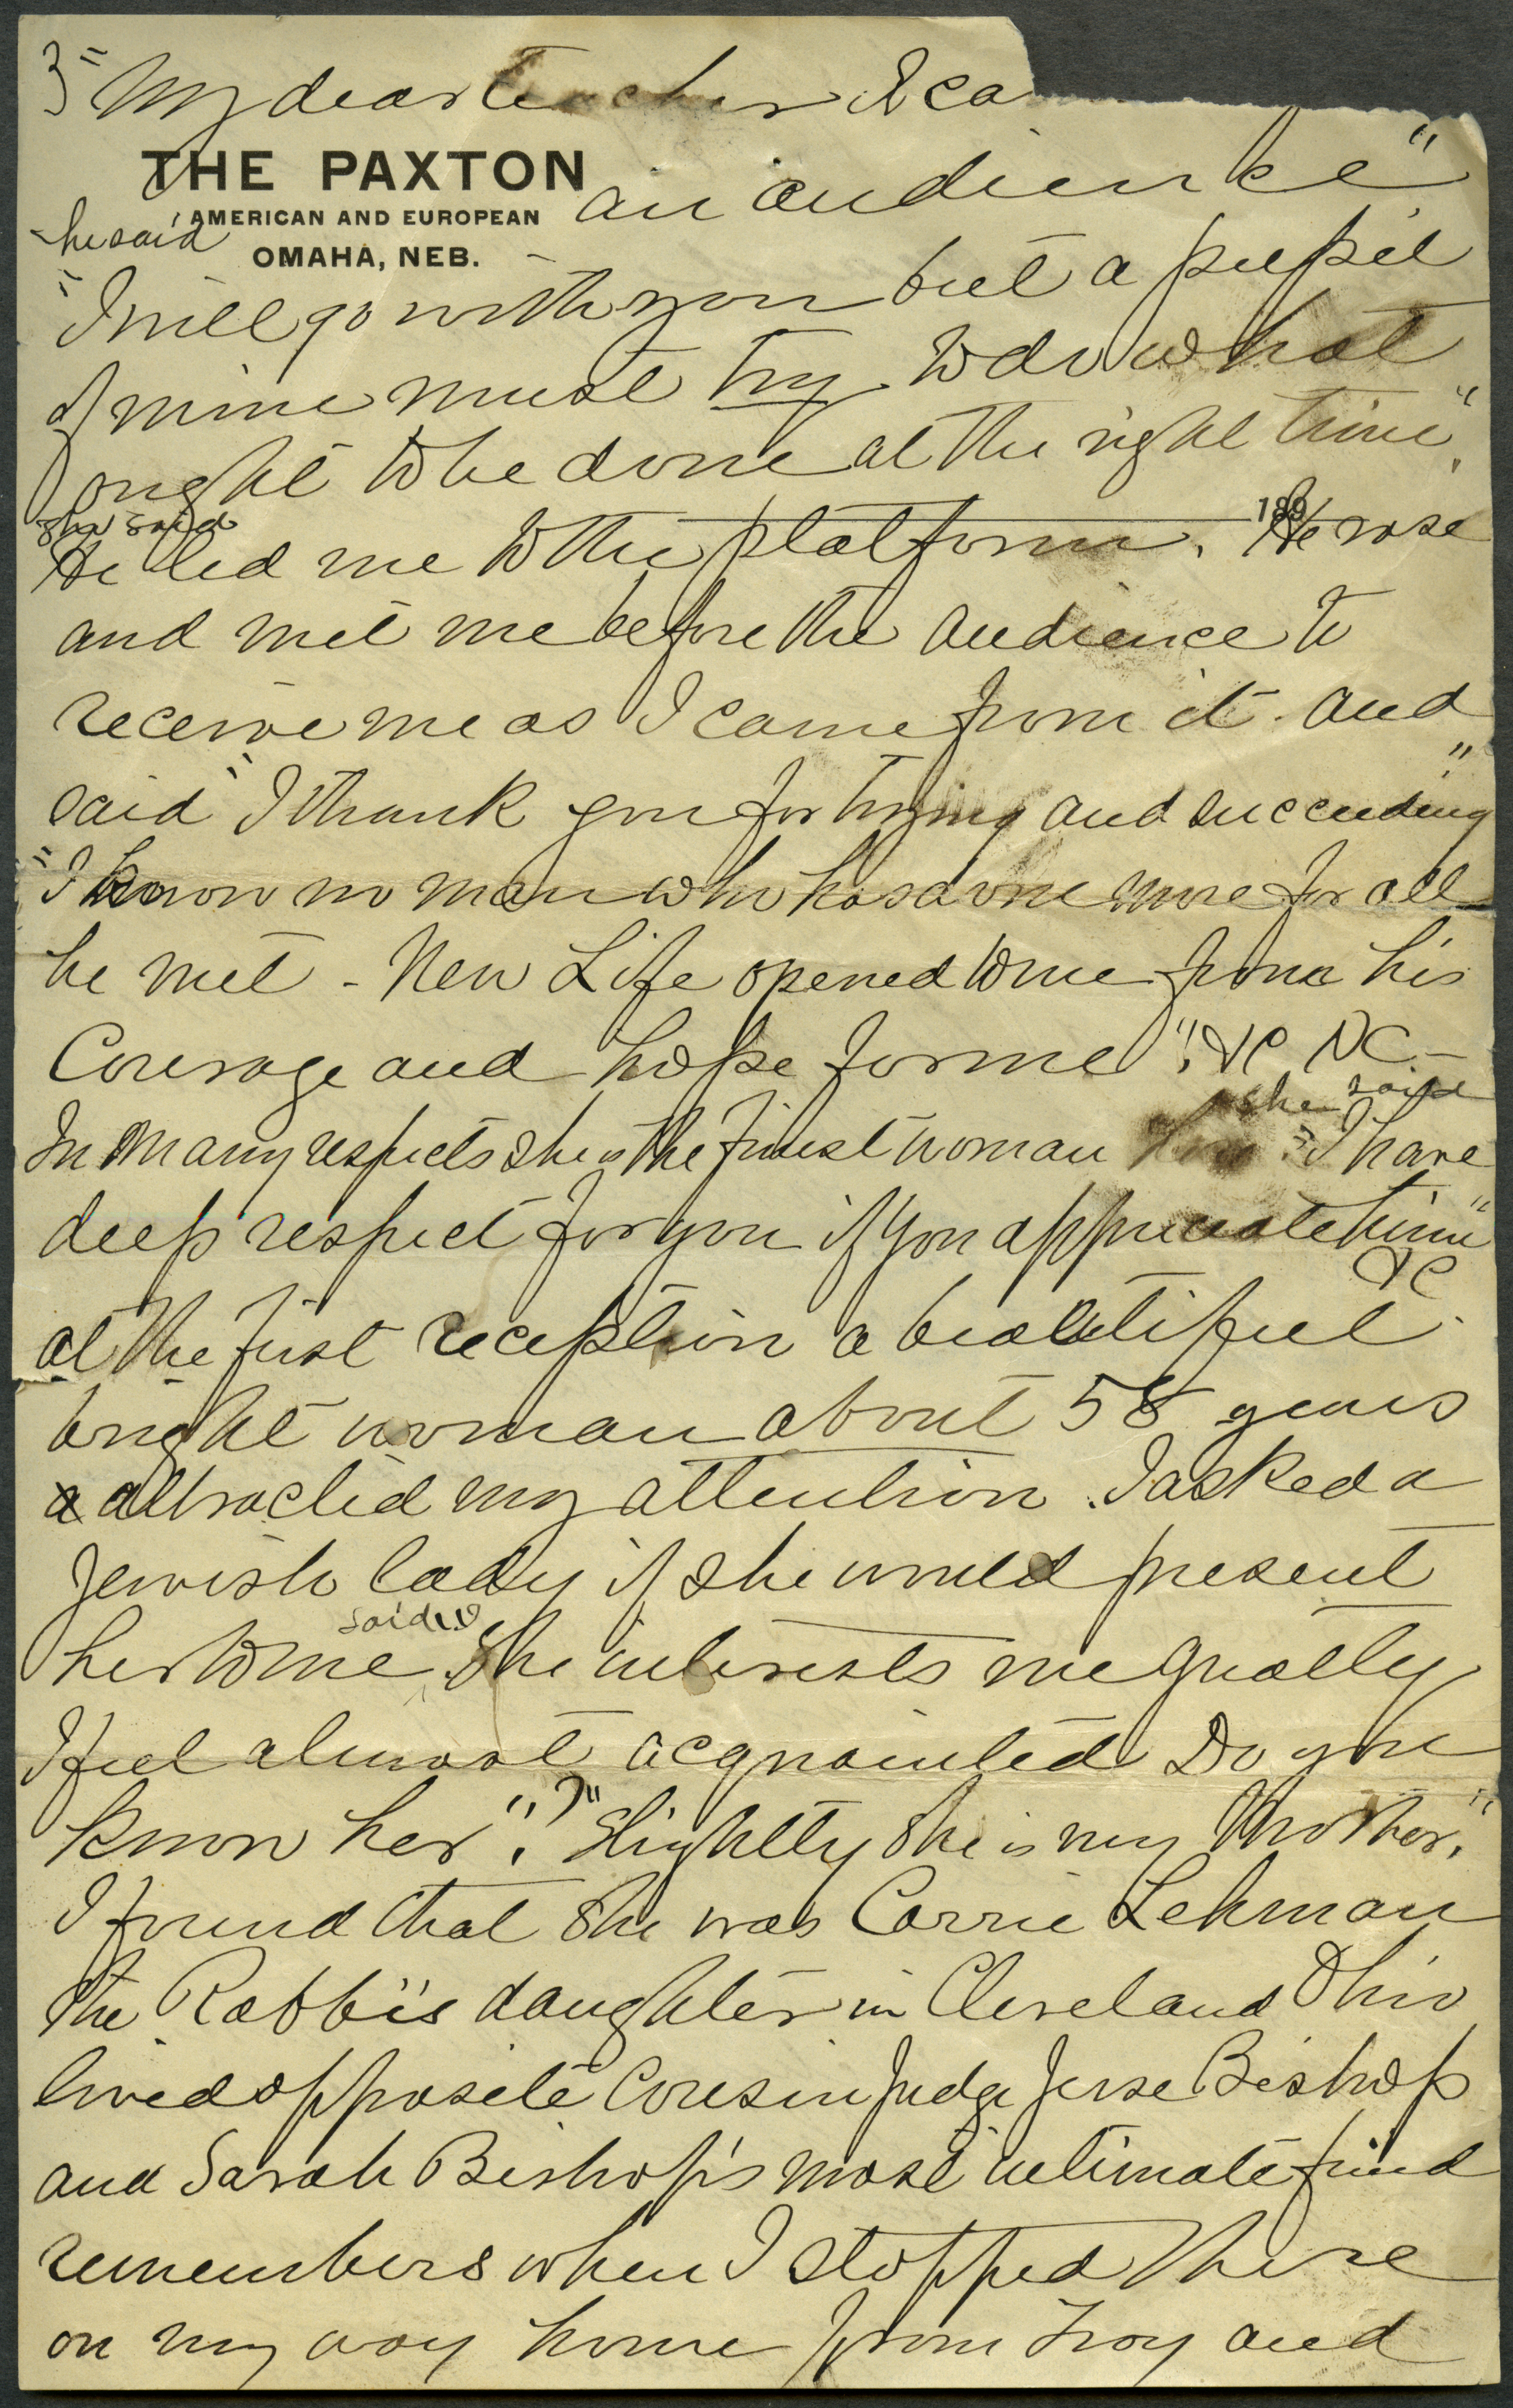 3 " My dear teacher I ca
THE PAXTON
AMERICAN AND EUROPEAN
OMAHA, NEB.
an audience"
he said
"I will go with you but a pupil
of mine must try to do what
ought to be done at the right time".
she said
189
He led me to the platform. He rose
and met me before the audience to
receive me as I came from it. And
said "I thank you for trying and succeeding"
"I know no man who has done more for all
he met - New Life opened to me from his
Courage and hope for me". &c &c -
she said
In many respects she is the finest woman "I have
deep respect for you if you appreciate him"
&c
at the first reception a beautiful
bright woman about 58 years
a attracted my attention. I asked a
Jewish lady if she would present
said "
her to me. She interests me greatly
I feel almost acquainted Do you
know her". ?" "Slightly she is my Mother".
I found that she was Carrie Lehman
the Rabbi's daughter in Cleveland Ohio
lived opposite Cousin Judge Jesse Bishop
and Sarah Bishop's most intimate friend
remembers when I stopped there
on my way home from Troy and